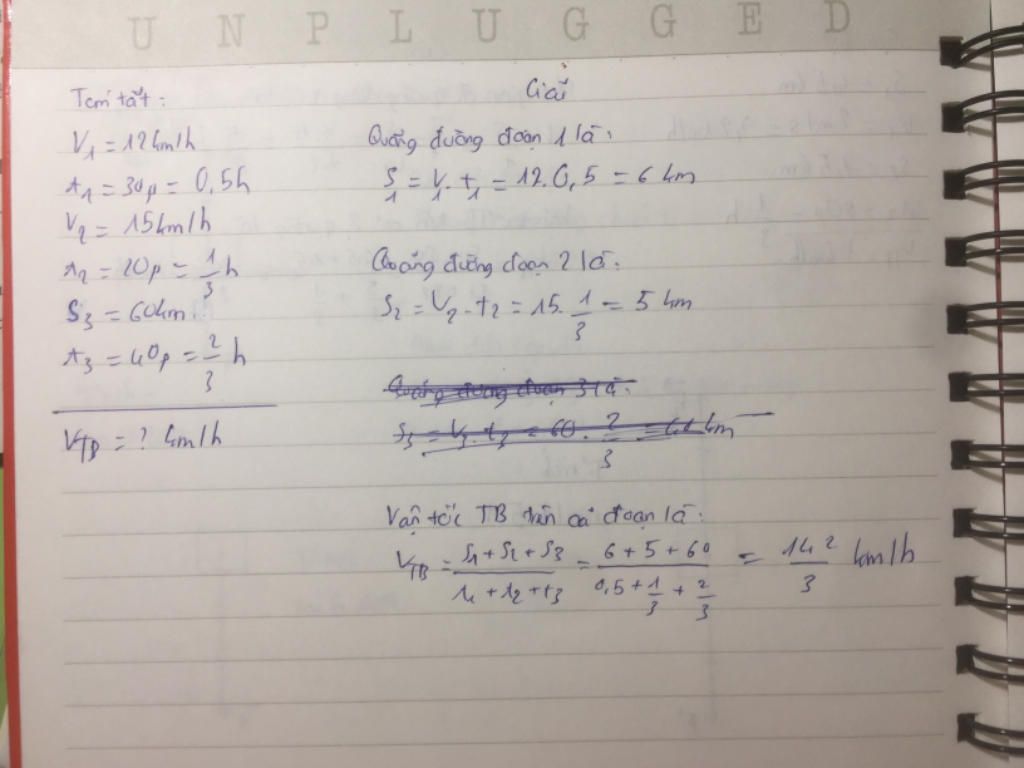 UNPLUGGED
Tóm tắt:
V₁ = 12km/h
t₁ = 30p = 0,5h
V₂ = 15km/h
t₂ = 20p = 1/3 h
S₃ = 60km
t₃ = 40p = 2/3 h
VTB = ? km/h
Giải
Quãng đường đoạn 1 là:
S₁ = V₁. t₁ = 12.0,5 = 6 km
Quãng đường đoạn 2 là:
S₂ = V₂. t₂ = 15. 1/3 = 5 km
Quãng đường đoạn 3 là:
S₃ = V₃. t₃ = 60. 2/3 = km
Vận tốc TB trên cả đoạn là:
VTB = S₁ + S₂ + S₃ / t₁ + t₂ + t₃ = 6 + 5 + 60 / 0,5 + 1/3 + 2/3 = 142/3 km/h